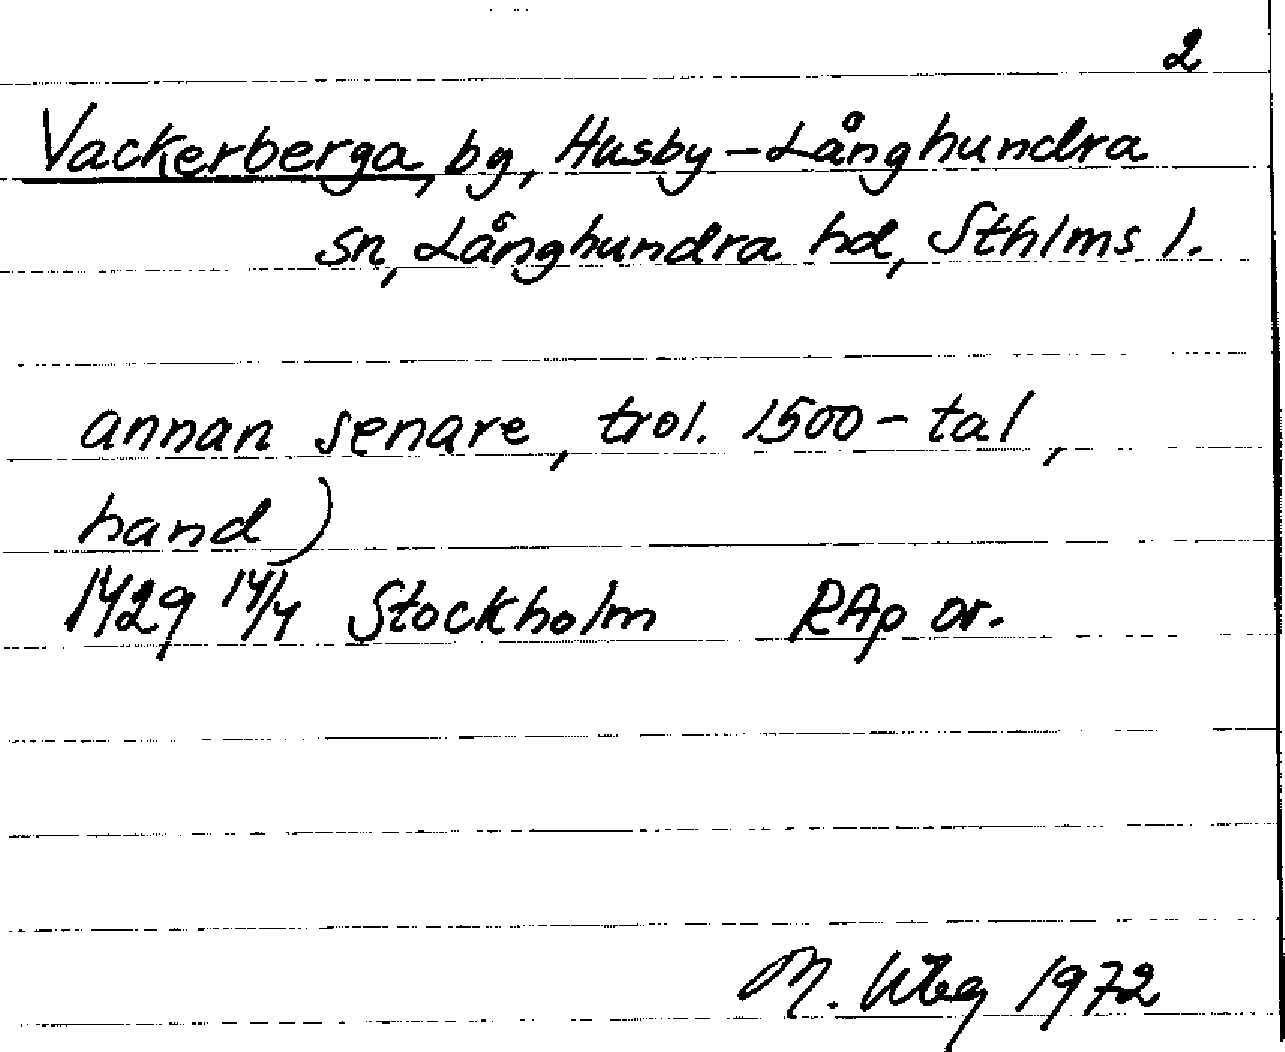 2
Vackerberga, bg, Husby-Långhundra
sn, Långhundra hd, Sthlms l.
annan senare, trol. 1500-tal,
hand)
1429 14/4 Stockholm RAp or.
M. Wbg 1972